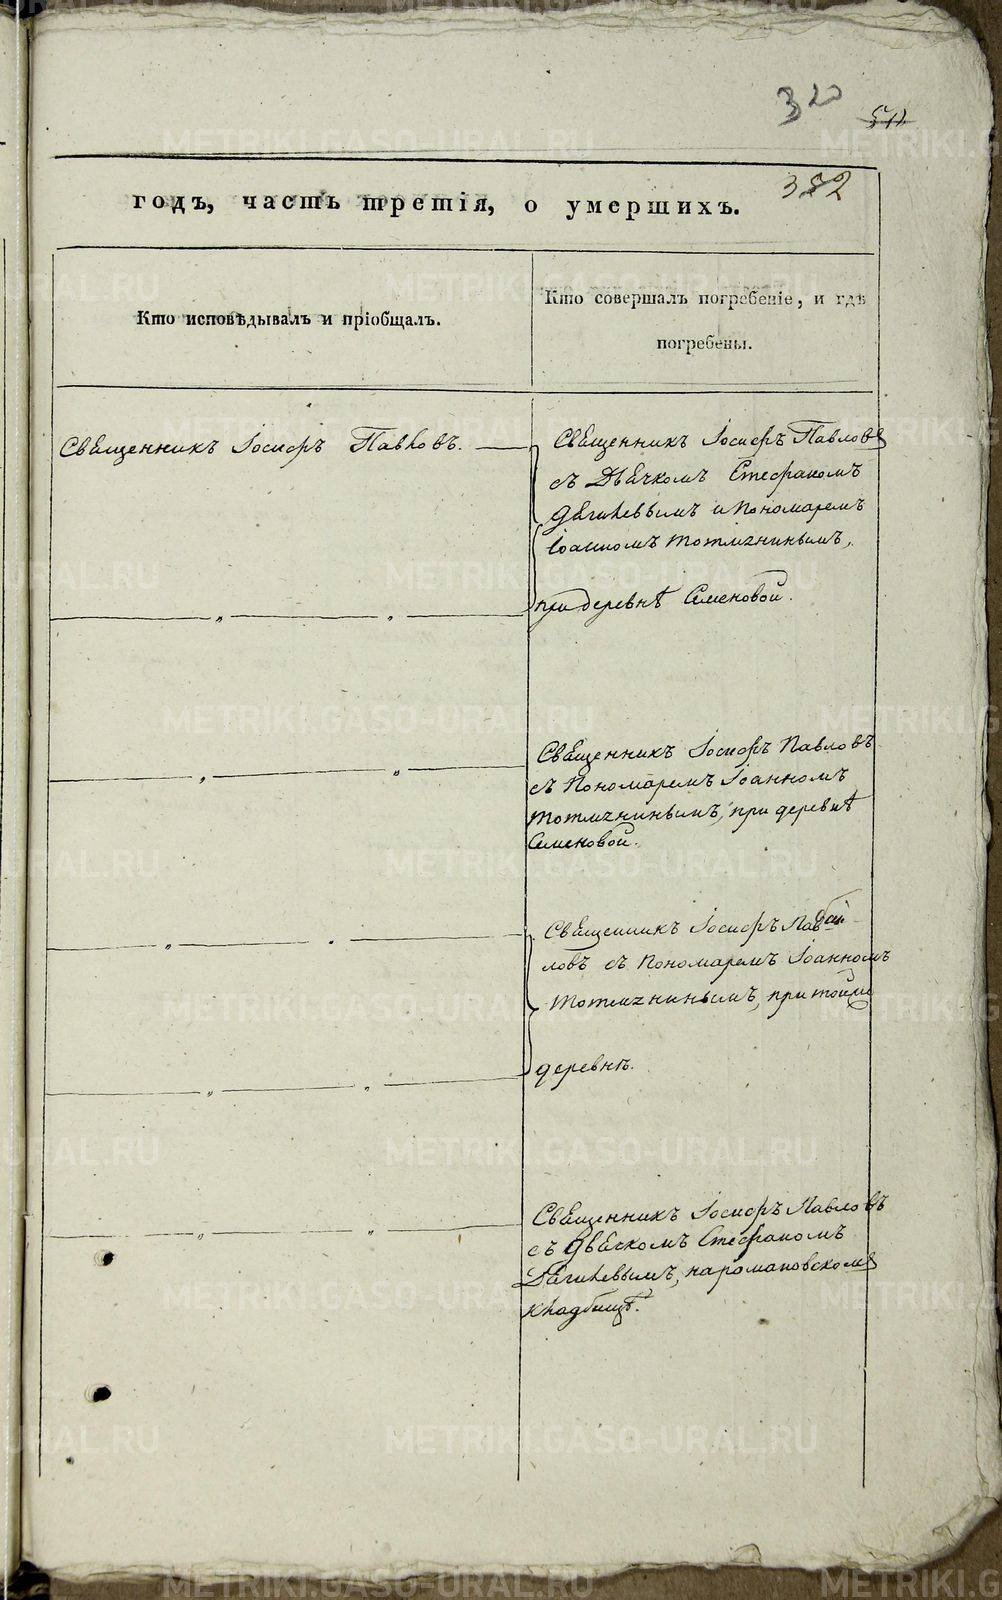 320
382
годъ, часть третія, о умершихъ.
Кто исповѣдывалъ и пріобщалъ.
Кто совершалъ погребеніе, и гдѣ
погребены.
Священникъ Іосифъ Павловъ.
Священникъ Іосифъ Павловъ
съ Дьячкомъ Стефаномъ
и Пономаремъ
Іоанномъ Тотмянинымъ,
при деревнѣ Семеновой.
Священникъ Іосифъ Павловъ
съ Пономаремъ Іоанномъ
Тотмянинымъ, при деревнѣ
Семеновой.
Священникъ Іосифъ Пав
ловъ съ Пономаремъ Іоанномъ
Тотмянинымъ, при тойже
деревнѣ.
Священникъ Іосифъ Павловъ
съ Дьячкомъ Стефаномъ
на романовскомъ
кладбищѣ.
METRIKI.GASO-URAL.RU